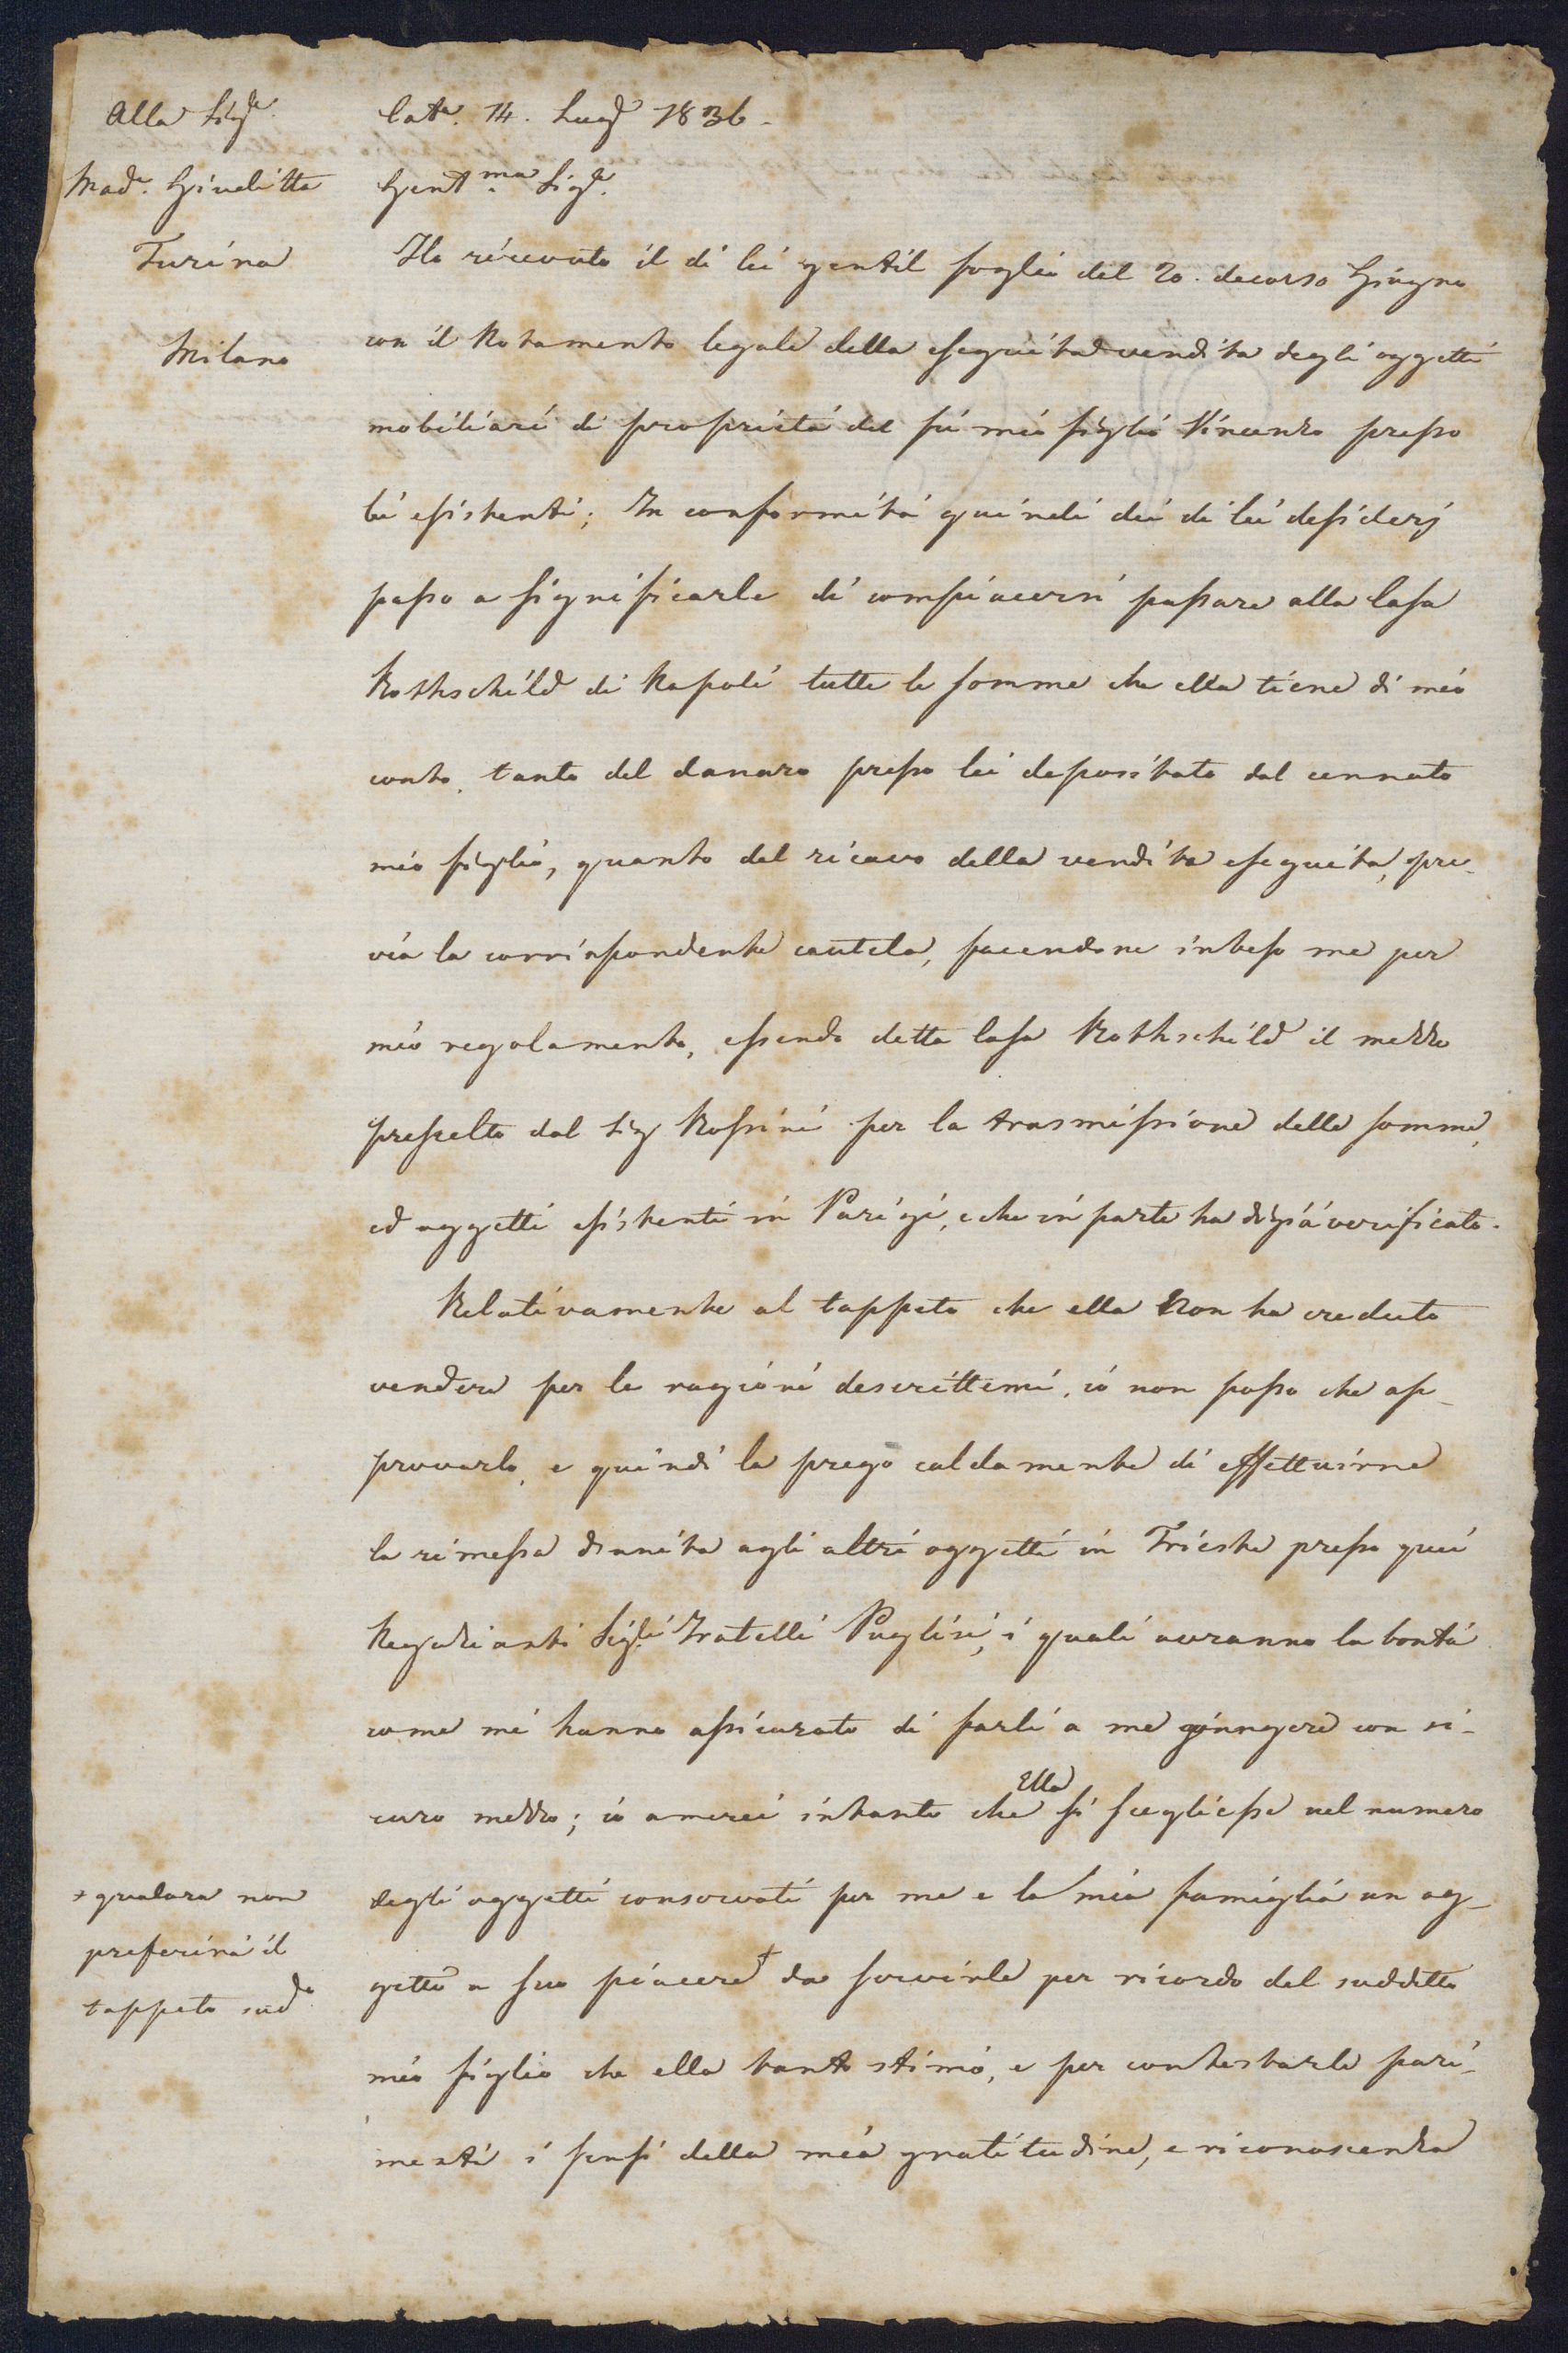 Alla Sig.ra
Mad.e Giuditta
Turina
Milano
Cat.a 14. Lug.o 1836.
Gent.ma Sig.ra
Ho ricevuto il di lei gentil foglio del 20. decorso Giugno
con il Notamento legale della eseguita vendita degli oggetti
mobiliari di proprietà del fù mio figlio Vincenzo presso
lei esistenti; In conformità quindi dei di lei desiderj
passo a significarle di compiacersi passare alla Casa
Rothschild di Napoli tutte le somme che ella tiene di mio
conto, tanto del danaro presso lei depositato dal cennato
mio figlio, quanto del ricavo della vendita eseguita, pre-
via la corrispondente cautela, facendone inteso me per
mio regolamento, essendo detta Casa Rothschild il mezzo
prescelto dal Sig.r Rossini per la trasmissione delle somme,
ed oggetti esistenti in Parigi, e che in parte ha digià verificato.
Relativamente al tappeto che ella Non ha creduto
vendere per le ragioni descrittemi, io non posso che ap-
provarlo, e quindi la prego caldamente di effettuirne
la rimessa drunita agli altri oggetti in Trieste presso quei
Negozianti Sig.ri Fratelli Puglisi, i quali avranno la bontà
come mi hanno assicurato di farli a me giungere con si-
curo mezzo; io amerei intanto che Ella si scegliesse nel numero
degli oggetti conservati per me e la mia famiglia un og-
getto a suo piacere + da servirle per ricordo del suddetto
mio figlio che ella tanto stimò, e per contestarle pari-
menti i sensi della mia gratitudine, e riconoscenza
+ qualora non
preferirà il
tappeto sud.o